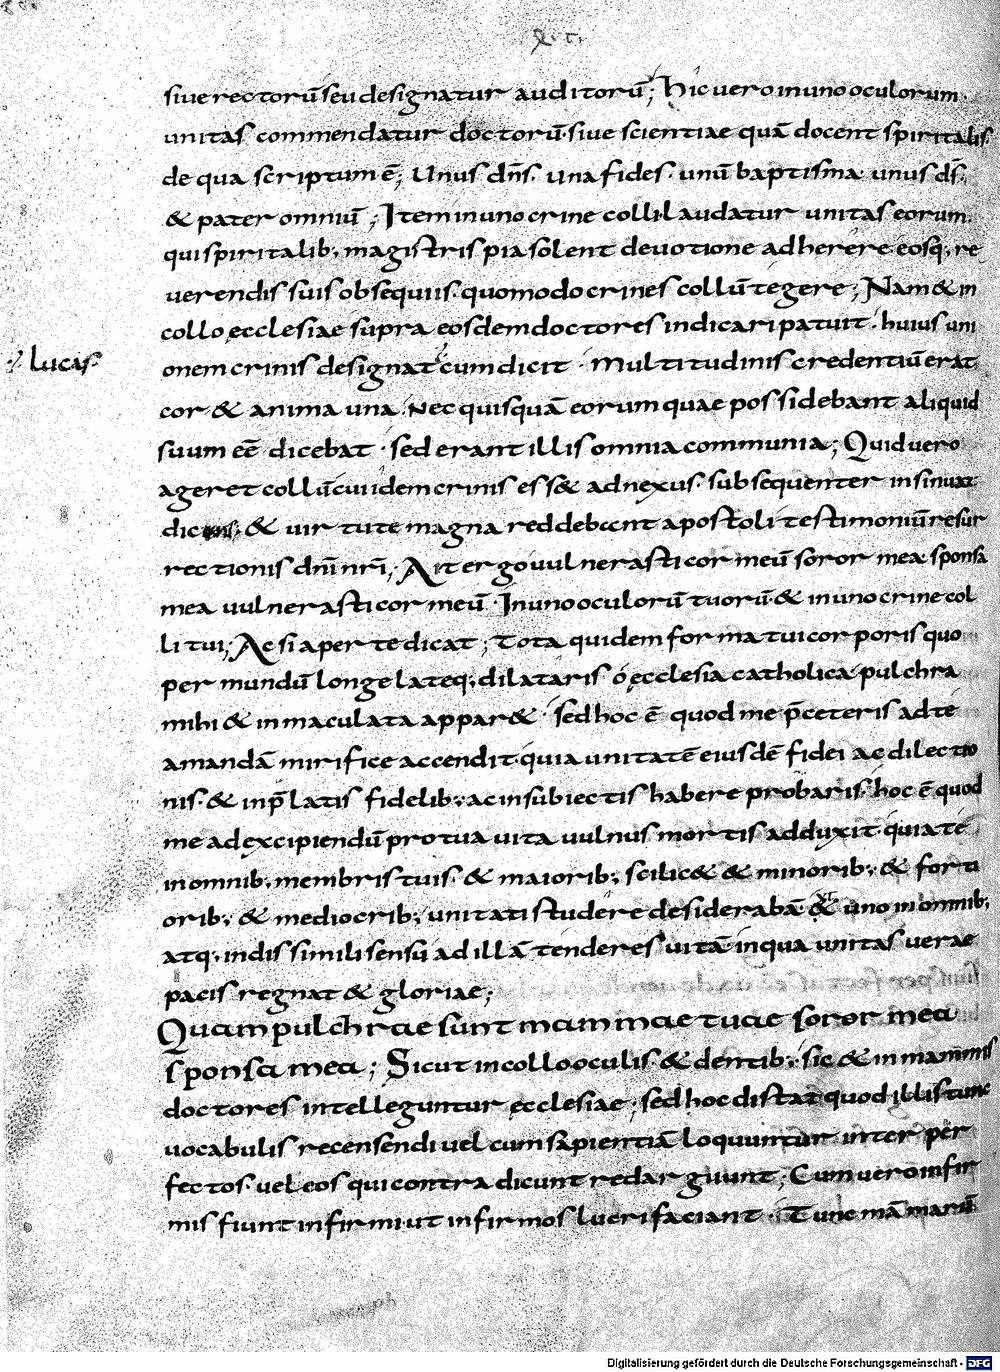 siue rectorū seu designatur auditorū; hic uero in uno oculorum
unitas commendatur doctorū siue scientiae quā docent spiritalis
de qua scriptum ē; Unus dn̄s. una fides. unū baptisma unus ds̄.
& pater omniū; Item in uno crine colli laudatur unitas eorum.
qui spiritalib; magistris pia solent deuotione adherere eosq; re
uerendis suis obsequiis. quomodo crines collū tegere; Nam & in
collo ecclesiae supra eosdem doctores indicari patuit. huius uni
onem crinis designat cum dicit. Multitudinis credentiū erat
lucas.
cor & anima una. Nec quisquā eorum quae possidebant aliquid
suum eē dicebat. sed erant illis omnia communia; Quid uero
ageret collū cui idem crinis ess& adnexus. subsequenter insinuat
& uirtute magna reddebant apostoli testimoniū resur
rectionis dn̄i nr̄i; Ait ergo uulnerasti cor meū soror mea sponsa
mea uulnerasti cor meū. In uno oculorū tuorū & in uno crine col
li tui; Ac si aperte dicat; Tota quidem forma tui corporis quo
per mundū longe lateq; dilataris ó ecclesia catholica pulchra
mihi & inmaculata appar&. sed hoc ē quod me p̄ceteris ad te
amandā mirifice accendit. quia unitatē eiusdē fidei ac dilectio
nis. & in p̄latis fidelib; ac in subiectis habere probaris. hoc ē quod
me ad excipiendū pro tua uita uulnus mortis adduxit. quia te
in omnib; membris tuis & maioribus; scilic& & minorib; & forti
orib; & mediocrib; unitati studere desiderabā & uno in omnib;
atq; indissimili sensu ad illā tenderes uitā in qua unitas uerae
pacis regnat & gloriae;
Quam pulchrae sunt mammae tuae soror mea
sponsa mea; Sicut in collo oculis & dentib; sic & in mammis
doctores intelleguntur ecclesiae; sed hoc distat quod illis tunc
uocabulis recensendi uel cum sapientiā loquuntur inter per
fectos uel eos qui contradicunt redarguunt; Cum uero infir
mis fiunt infirmi ut infirmos lucrifaciant. Tunc mā marū
Digitalisierung gefördert durch die Deutsche Forschungsgemeinschaft - DFG